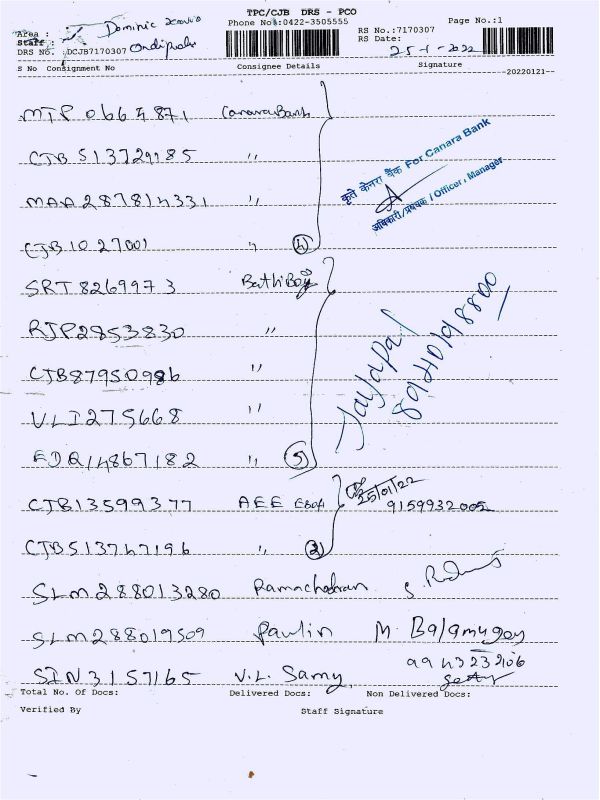 TPC/CJB DRS - PCO
Phone No:0422-3505555
Page No.:1
Area :
Dominic
Staff :
RS No.:7170307
RS Date:
25-1-2022
DRS No. :DCJB7170307
S No Consignment No
Consignee Details
Signature
20220121
MTP 0664871 Canara Bank
CJB 513729185 "
MAA 287814331 "
CJB 1027001 " 4
कृते केनरा बैंक For Canara Bank
अधिकारी/प्रबंधक / Officer, Manager
SRT 8269973
RJP2853830 "
CJB87950986 "
VLI275668 "
EDQ14867182 " 5
Jayapal
8940198800
CJB13599377 AEE
25/01/22
9159932005
CJB513747196 " 2
SLM288013280 Ramachadran
SLM288019509 Paulin M. Balamugey
SIN3157165 V.L. Samy
9943232106
Total No. Of Docs:
Delivered Docs:
Non Delivered Docs:
Verified By
Staff Signature